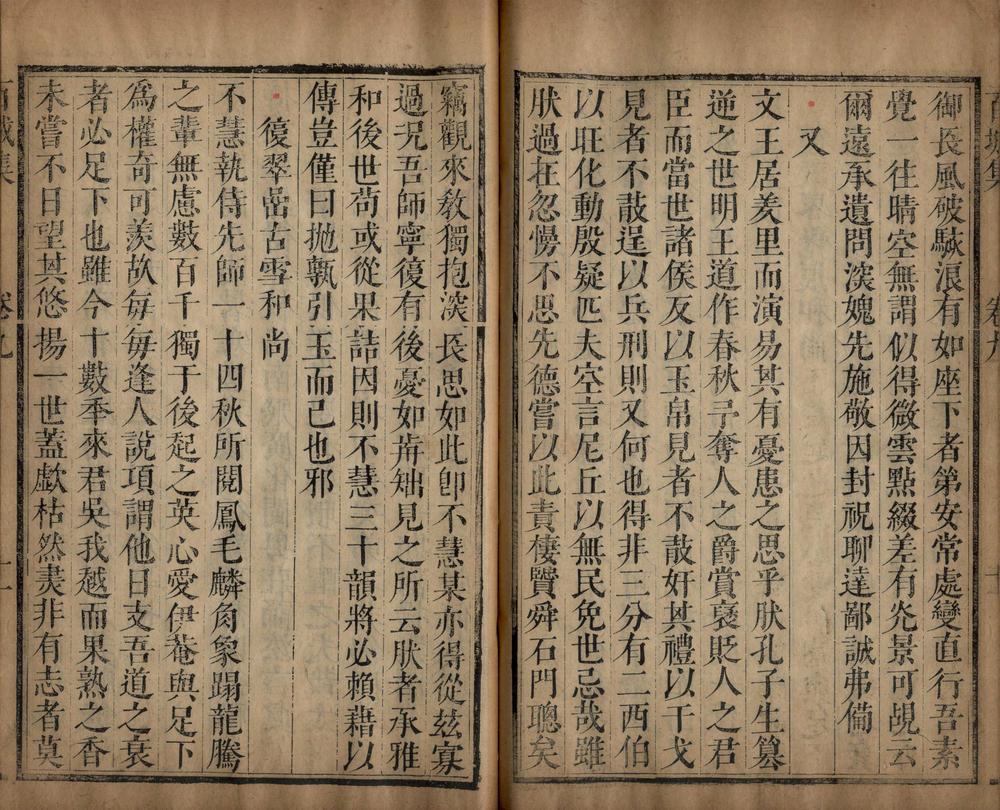 御長風破駭浪有如座下者第安常處變直行吾素
覺一往晴空無謂似得微雲點綴差有灮景可覘云
爾遠承遺問深媿先施敬因封祝聊達鄙誠弗僃
又
文王居羑里而演易其有憂患之思乎肰孔子生篡
逆之世明王道作春秋予奪人之爵賞襃貶人之君
臣而當世諸侯友以玉帛見者不敢奸其禮以干戈
見者不敢逞以兵刑則又何也得非三分有二西伯
以旺化動殷疑匹夫空言尼丘以無民免世忌哉雖
肰過在忽慢不思先德嘗以此責棲賢舜石門聰矣
竊觀來教獨抱深長思如此卽不慧某亦得從玆寡
過況吾師寧復有後憂如歬𡖖見之所云肰者承雅
和後世苟或從果詰因則不慧三十韻將必賴藉以
傳豈僅曰拋甎引玉而已也邪
復翠嵒古雪和尚
不慧執侍先師一十四秋所閱鳳毛麟角象蹋龍騰
之輩無慮數百千獨于後起之英心愛伊菴與足下
爲權奇可羨故每每逢人說項謂他日支吾道之衰
者必足下也雖今十數秊來君吳我越而果熟之香
未嘗不日望其悠揚一世蓋歔枯然爂非有志者莫